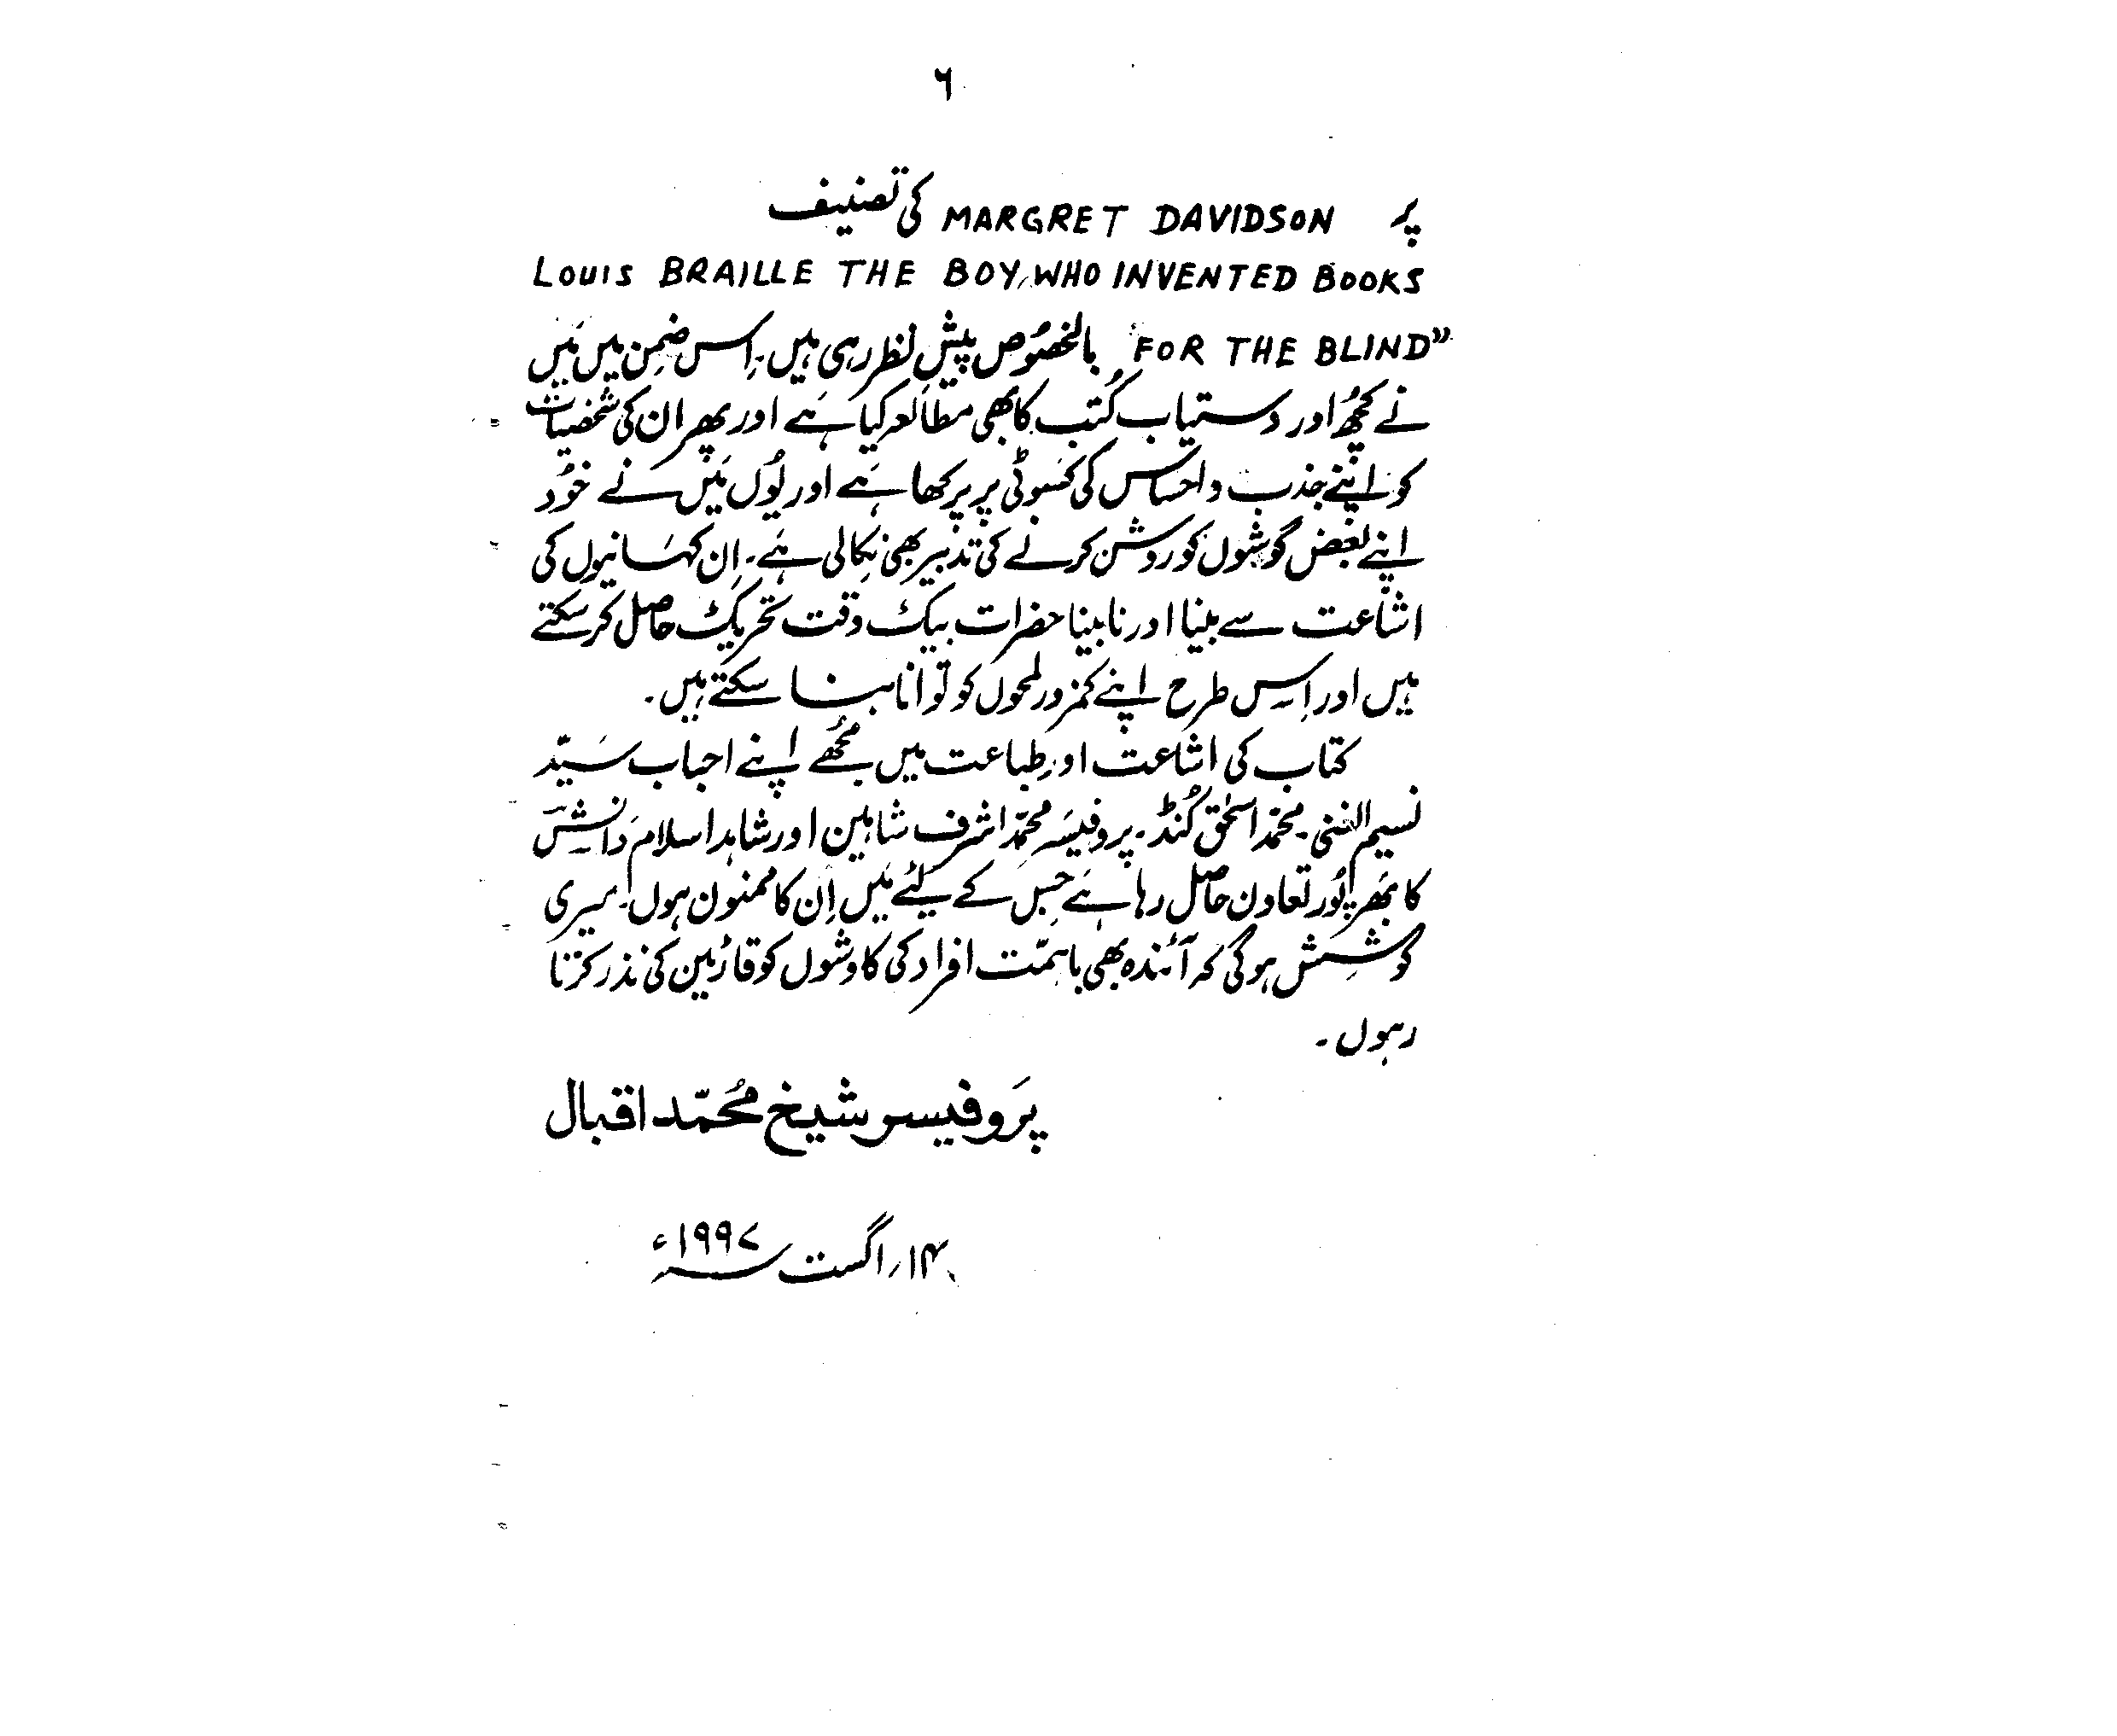 ٦
پر MARGRET DAVIDSON کی تصنیف
LOUIS BRAILLE THE BOY, WHO INVENTED BOOKS
FOR THE BLIND” بالخصُوص پیشِ نظر رہی ہیں۔ اِس ضمِن میں مَیں
نے کچھُ اور دستیاب کُتب کا بھی مطالعہ کیا ہَے اور پھر ان کی شخصیات
کو اپنے جذب و احساس کی کسَوٹی پر پرکھا ہَے اور یُوں مَیں نے خوُد
اپنے بعَض گوشوں کو روشن کرنے کی تدبیر بھی نِکالی ہَے۔ اِن کہَانیوں کی
اشاعت سے بینا اور نابینا حضرات بیک وقت تحریک حاصل کر سکتے
ہیں اور اِس طرح اپنے کمزور لمحوں کو توانا بنا سکتے ہیں۔
کتاب کی اشاعت اور طِباعت میں مُجھے اپنے احباب سَیّد
نسیم الغنی۔ محمّد اسحٰق کُنڈ۔ پروفیسَر محمّد اشرف شاہین اور شاہد اسلام دَانِش
کا بھَرپُور تعاون حاصل رہا ہَے جِس کے لیئے مَیں اِن کا ممنون ہوں۔ میری
کوشِش ہو گی کہ آئندہ بھی باہمّت افراد کی کاوشوں کو قارئین کی نذر کرتا
رہوں۔
پرَوفیسر شیخ مُحمّد اقبال
۱۴؍ اگست ۱۹۹۷ء